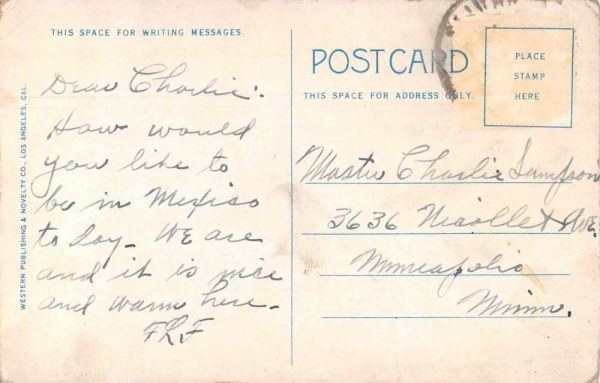 THIS SPACE FOR WRITING MESSAGES.
Dear Charlie:
How would
you like to
be in Mexico
to day - WE are
and it is nice
and warm here -
FRF
WESTERN PUBLISHING & NOVELTY CO., LOS ANGELES, CAL.
POSTCARD
THIS SPACE FOR ADDRESS ONLY.
PLACE
STAMP
HERE
Master Charlie Sampson
3636 Nicollet AVE.
Minneapolis
Minn.